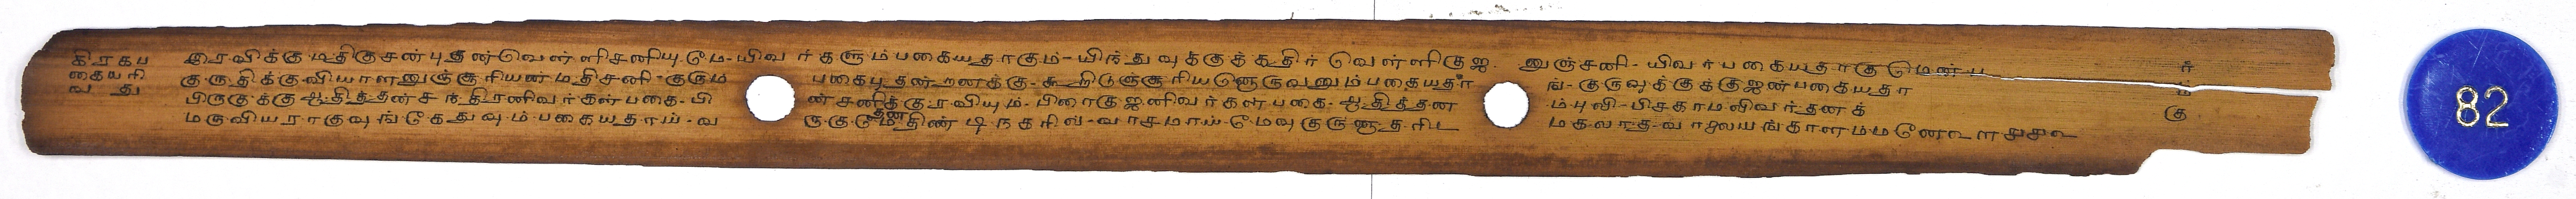 கிரகப இரவிக்கு மதிகுசன்புதன்வெள்ளிசனியுமே-யிவர்களும்பகையதாகும்-யிந்துவுக்குக்கதிர் வெள்ளிகுஜ னுஞ்சனி-யிவர்பகையதாகுமென்ப ர்
கைவரி குருதிக்குவியாளனுஞ்சூரியன்மதிசனி-குரும் பகைபுதன்றனக்கு-சுடிறிடுஞ்சூரியனுருவனும்பகையதா ங்-குருவுக்குக்குஜன்பகையதா ம்
வது பிருகுக்குஆதித்தன்சந்திரனிவர்கள்பகை-பி ன்சனிக்குரவியும்-பினாகுஜனிவர்கள்பகை-ஆதித்தன ம்புவி-பிசகாமலிவர்தனக் கு
மருவியராகுவுங்கேதுவும்பகையதாய்-வ ருகுமேதிண்டிநகரில்-வாசமாய்மேவுகுருணாதரிட மகலாத-வாலையங்காளம்மணே உள ௮௪௨
82